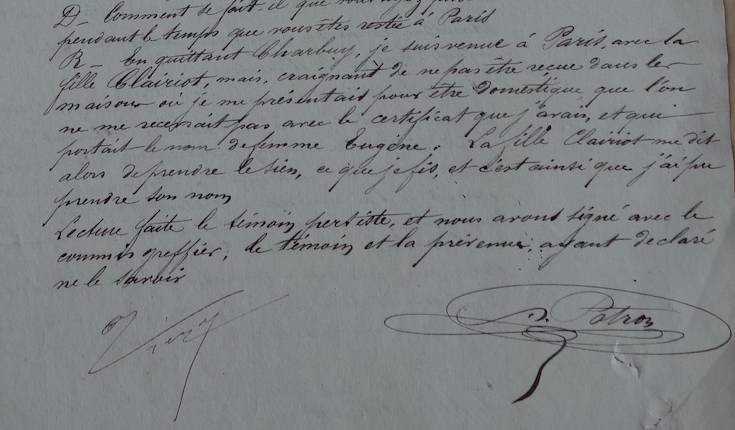 D_ Comment se fait-il que vous
pendant le temps que vous êtes restée à Paris
R_ En quittant Charbuy, je suis revenue à Paris, avec la
fille Clairiot, mais, craignant de ne pas être reçue dans les
maisons où je me présentais pour être domestique que l'on
ne me recevrait pas avec le certificat que j'avais, et qui
portait le nom de femme Eugène. La fille Clairiot me dit
alors de prendre le sien, ce que je fis, et c'est ainsi que j'ai pu
prendre son nom
Lecture faite le témoin persiste, et nous avons signé avec le
commis greffier, le témoin et la prévenue, ayant declaré
ne le savoir
Patron